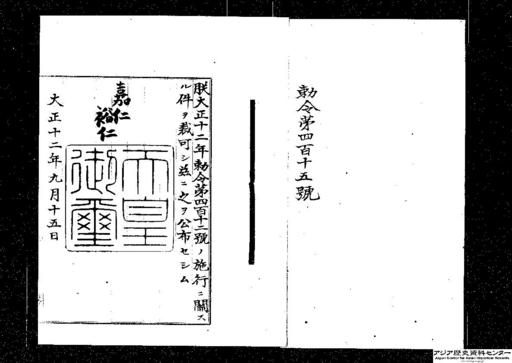 勅令第四百十五號
朕大正十二年勅令第四百十二號ノ施行ニ關ス
ル件ヲ裁可シ茲ニ之ヲ公布セシム
嘉仁
裕仁
天皇
御璽
大正十二年九月十五日
アジア歴史資料センター
Japan Center for Asian Historical Records